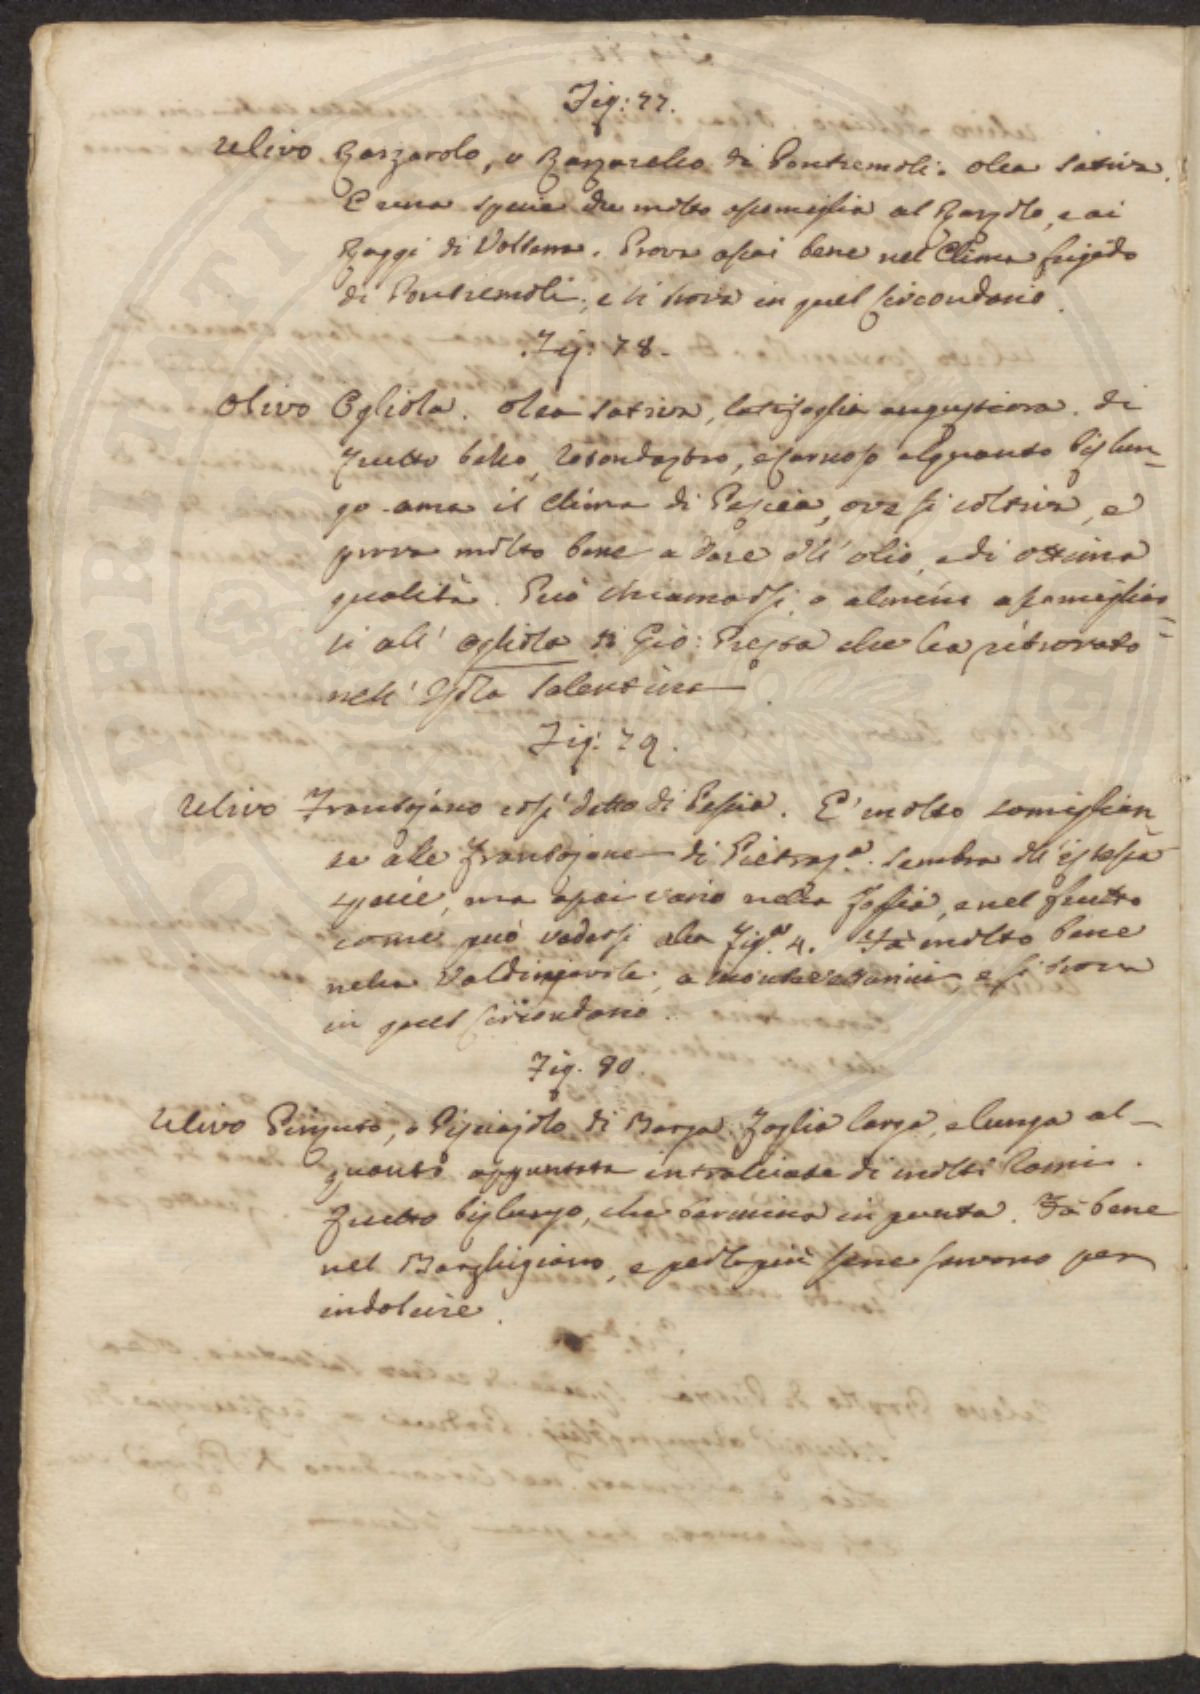 Fig: 77.
Ulivo Razzarolo, o Razzarello di Pontremoli. olea sativa.
E una specie che molto assomiglia al Razzolo, e ai
Raggi di Volterra. Prova assai bene nel Clima frigido
di Pontremoli, e si trova in quel Circondario.
Fig: 78.
Olivo Ogliola. olea sativa, latifoglia angustiora. di
frutto bello, rotondastro, e carnoso alquanto bislun-
go. ama il Clima di Pescia, ove si coltiva, e
prova molto bene a dare dell' olio, e di ottima
qualità. Può chiamarsi, o almeno assomigliar-
si all' ogliola di Gio: Presta che ha ritrovato
nell' Isola Salentina.
Fig: 79.
Ulivo Frantojano così detto di Pescia. E' molto somiglian
te alle frantojane di Pietras.ª. Sembra dell' istessa
specie, ma assai vario nella foglia, e nel frutto
come può vedersi alla Fig.ª 4. Fà molto bene
nella Valdinievole, a Montecatini e si trova
in quel Circondario.
Fig. 80.
Ulivo Pinzuto, o Pisciajolo di Barga. foglia larga, e lunga al-
quanto appuntata intralciata di molti Rami.
frutto bislungo, che termina in punta. Fà bene
nel Barghigiano, e per lo più se ne servono per
indolcire.